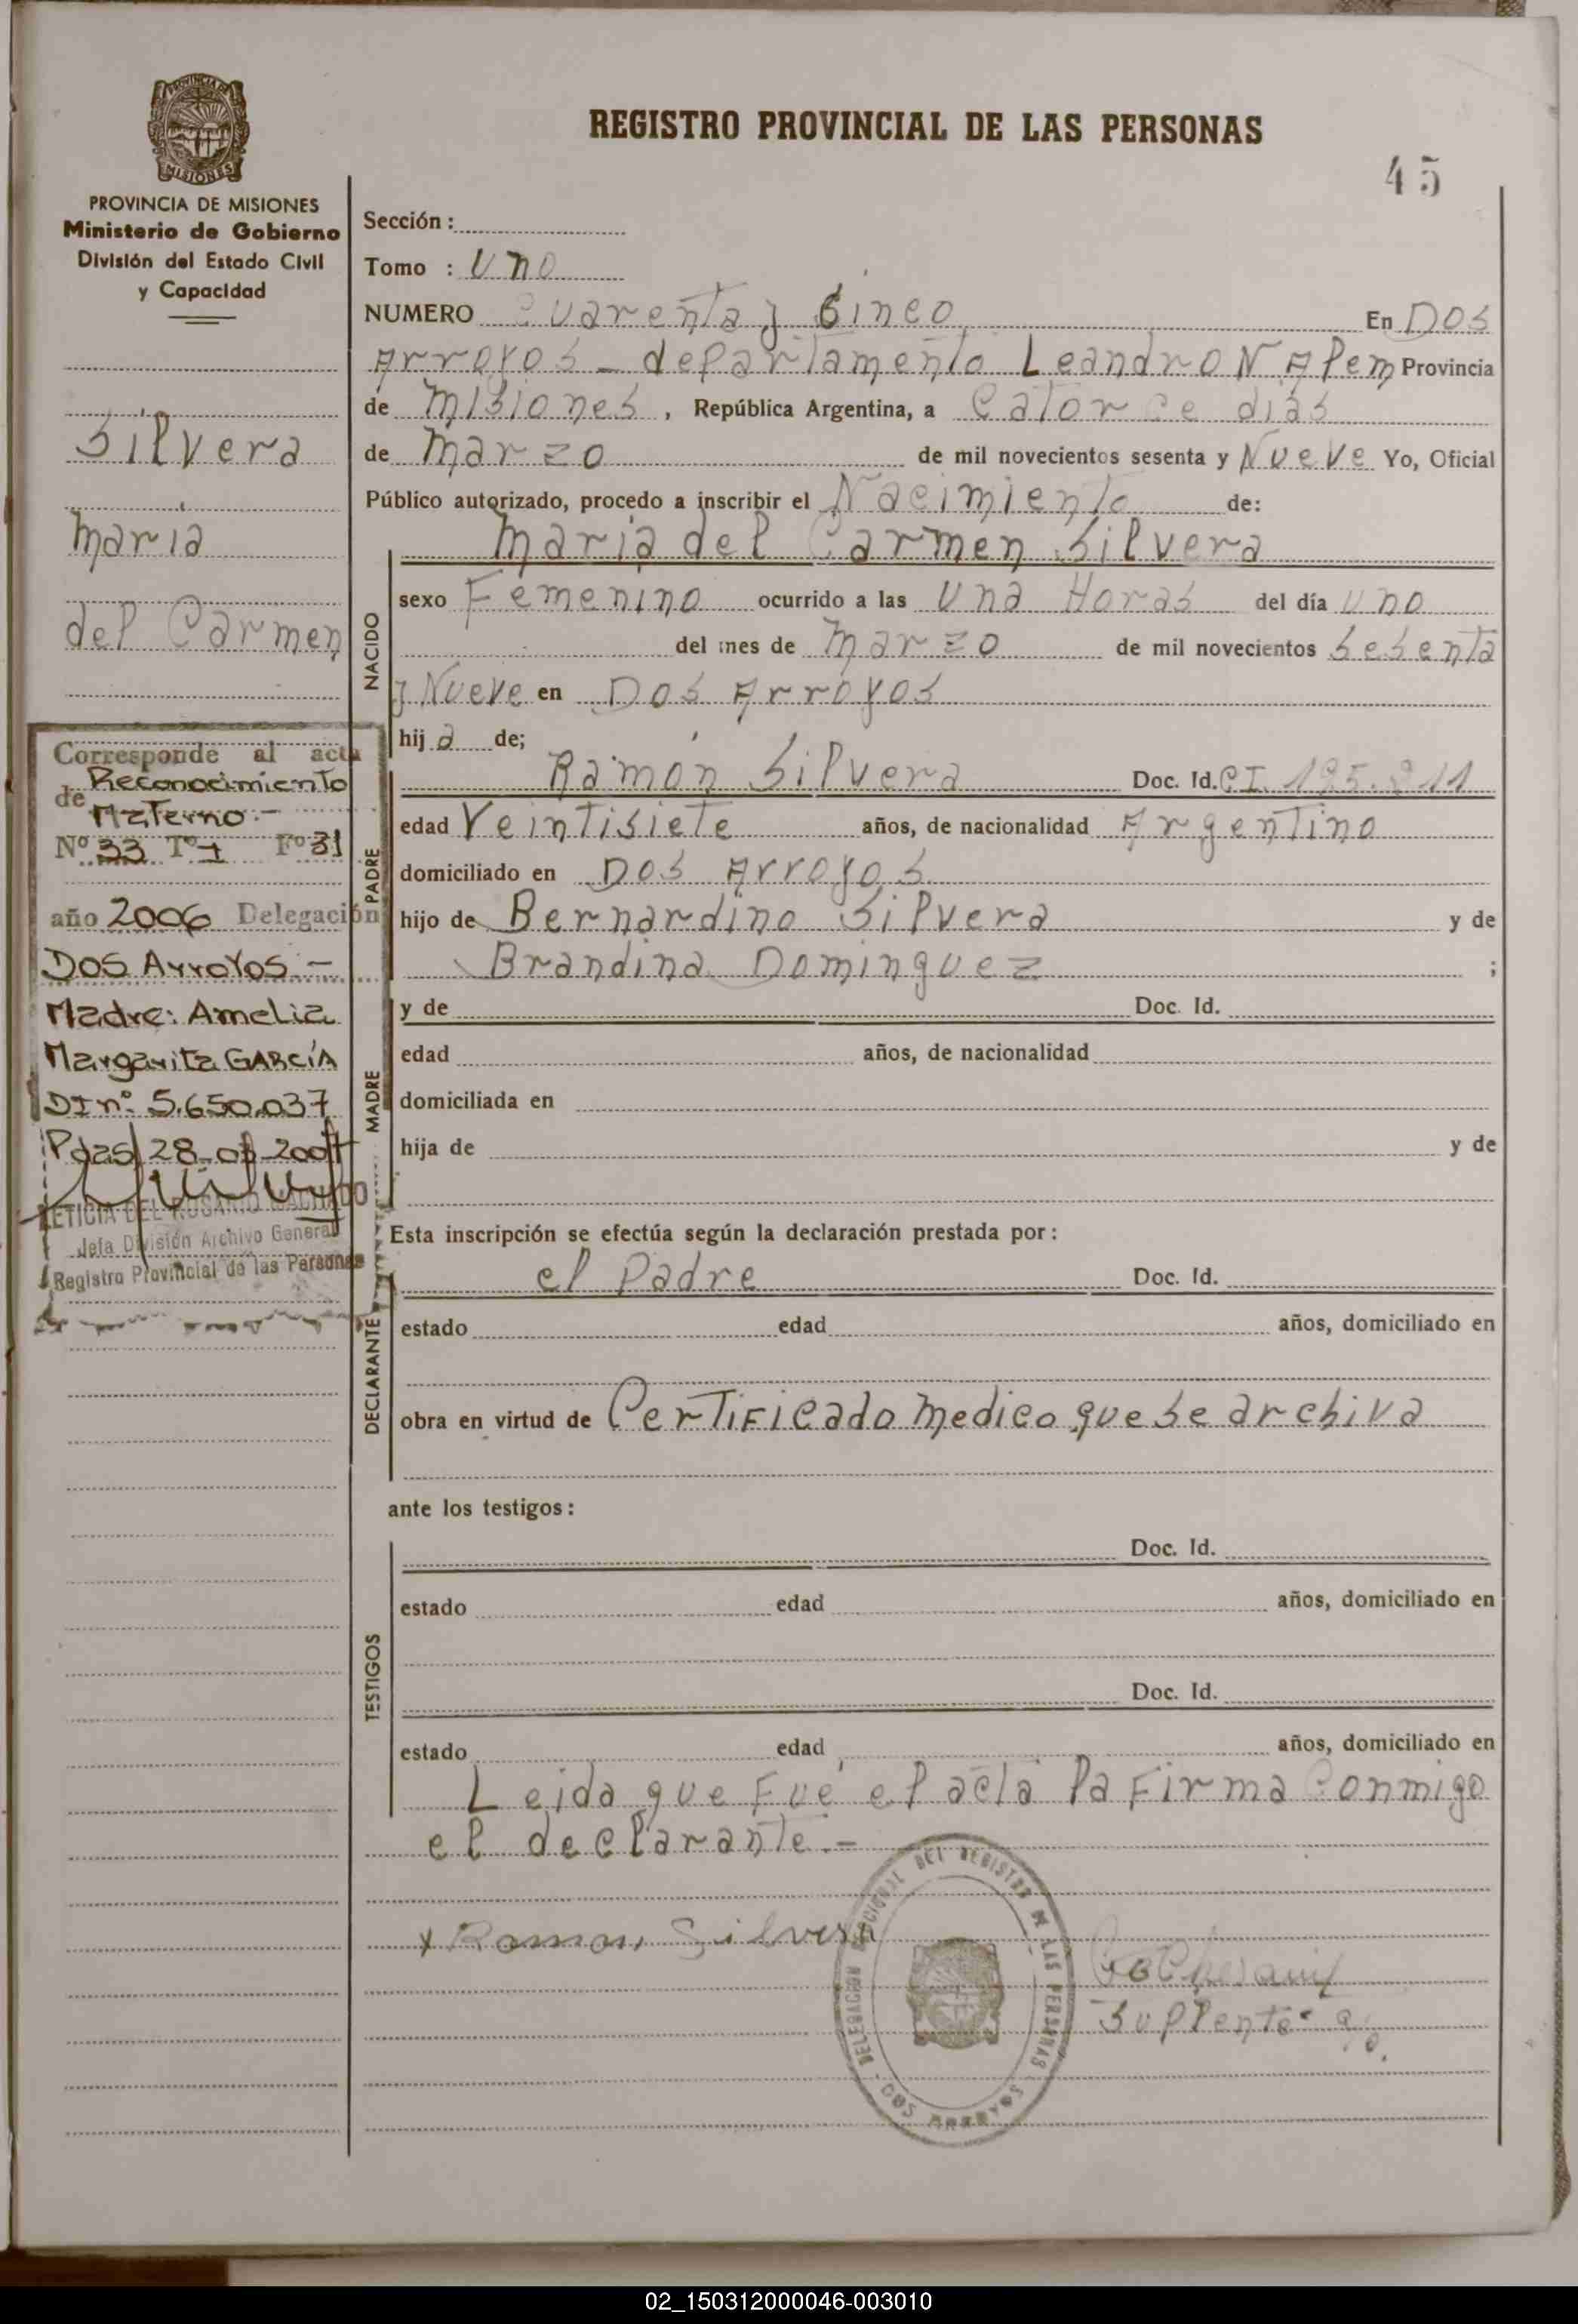 REGISTRO PROVINCIAL DE LAS PERSONAS
45
MISIONES
PROVINCIA DE MISIONES
Ministerio de Gobierno
División del Estado Civil
y Capacidad
Silvera
maria
del Carmen
Corresponde al acta
de Reconocimiento
Materno.-
Nº 33 Tº 1 Fº 31
año 2006 Delegación
Dos Arroyos.-
Madre: Amelia
Margarita GARCÍA
DI nº 5.650.037
Pdas 28
LETICIA DEL ROSARIO
Jefa División Archivo General
Registro Provincial de las Personas
Sección :
Tomo : Uno
NUMERO Cuarenta y Cinco En Dos
Arroyos - departamento Leandro N Alem Provincia
de Misiones , República Argentina, a Catorce dias
de Marzo de mil novecientos sesenta y Nueve Yo, Oficial
Público autorizado, procedo a inscribir el Nacimiento de:
Maria del Carmen Silvera
NACIDO
sexo Femenino ocurrido a las Una Horas del día uno
del mes de Marzo de mil novecientos Sesenta
y Nueve en Dos Arroyos
hij a de;
PADRE
Ramón Silvera Doc. Id. CI. 195.211
edad Veintisiete años, de nacionalidad Argentino
domiciliado en Dos Arroyos
hijo de Bernardino Silvera y de
Brandina Dominguez ;
MADRE
y de Doc. Id.
edad años, de nacionalidad
domiciliada en
hija de y de
Esta inscripción se efectúa según la declaración prestada por :
DECLARANTE
el Padre Doc. Id.
estado edad años, domiciliado en
obra en virtud de Certificado medico que se archiva
ante los testigos :
TESTIGOS
Doc. Id.
estado edad años, domiciliado en
Doc. Id.
estado edad años, domiciliado en
Leida que Fué el acta la Firma Conmigo
el declarante.-
x Ramon Silvera
DELEGACION SECCIONAL DEL REGISTRO DE LAS PERSONAS - DOS ARROYOS
Suplente
02_150312000046-003010